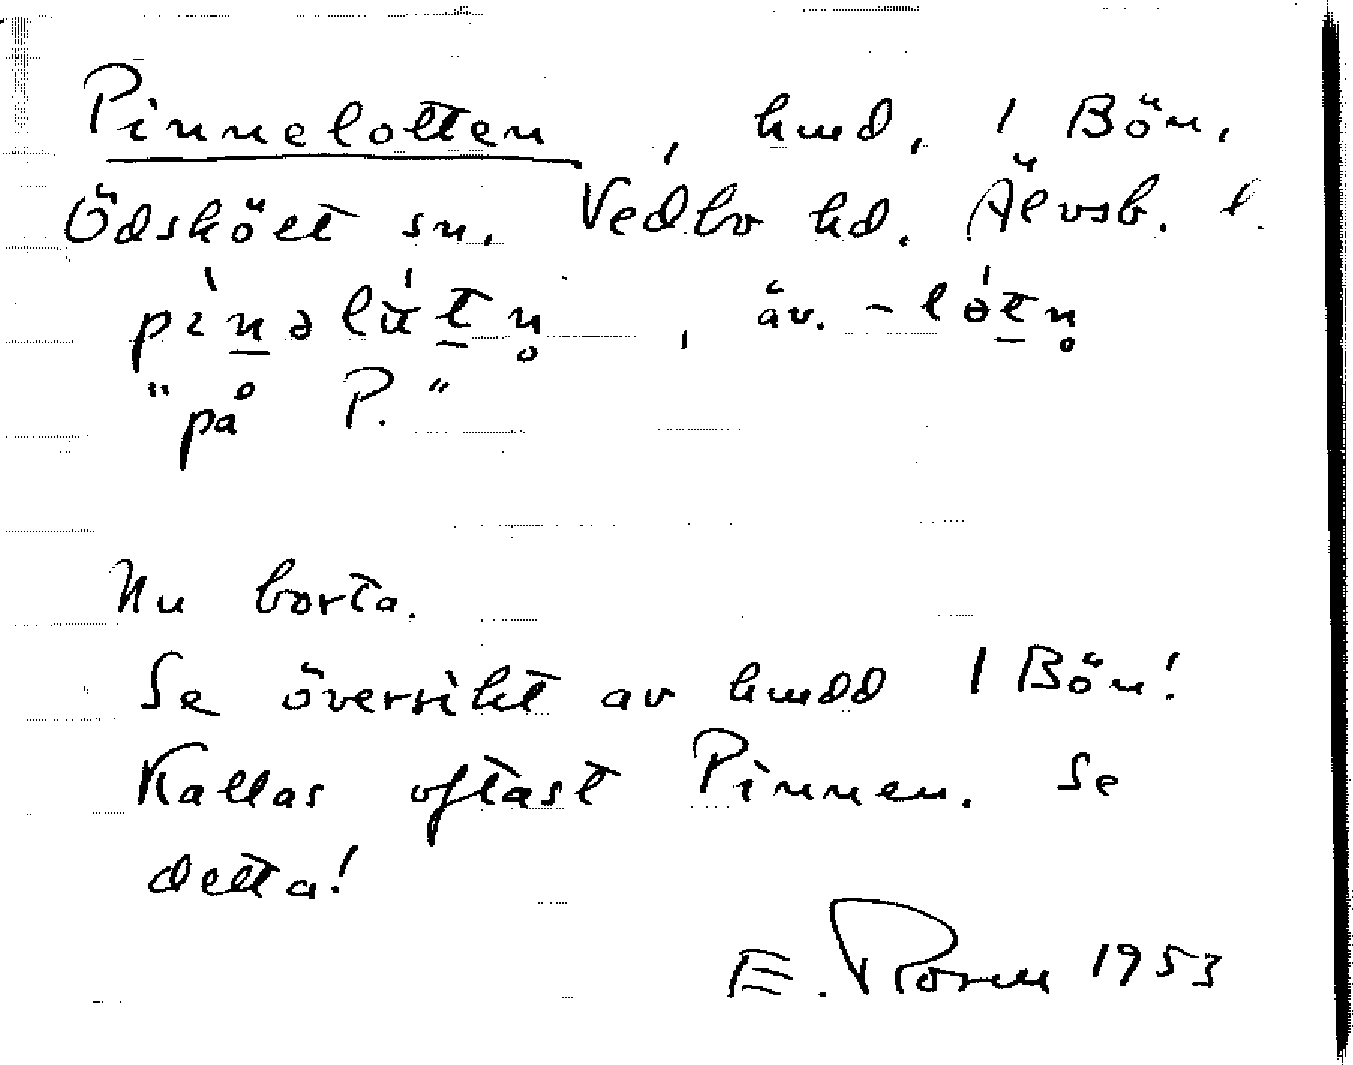 Pinnelotten, hmd, 1 Bön,
Ödskölt sn. Vedbo hd. Älvsb. l.
pìnəlùtn̥, äv. -lòtn̥
"på P."
Nu borta.
Se översikt av hmdd 1 Bön!
Kallas oftast Pinnen. Se
detta!
E. Rosell 1953